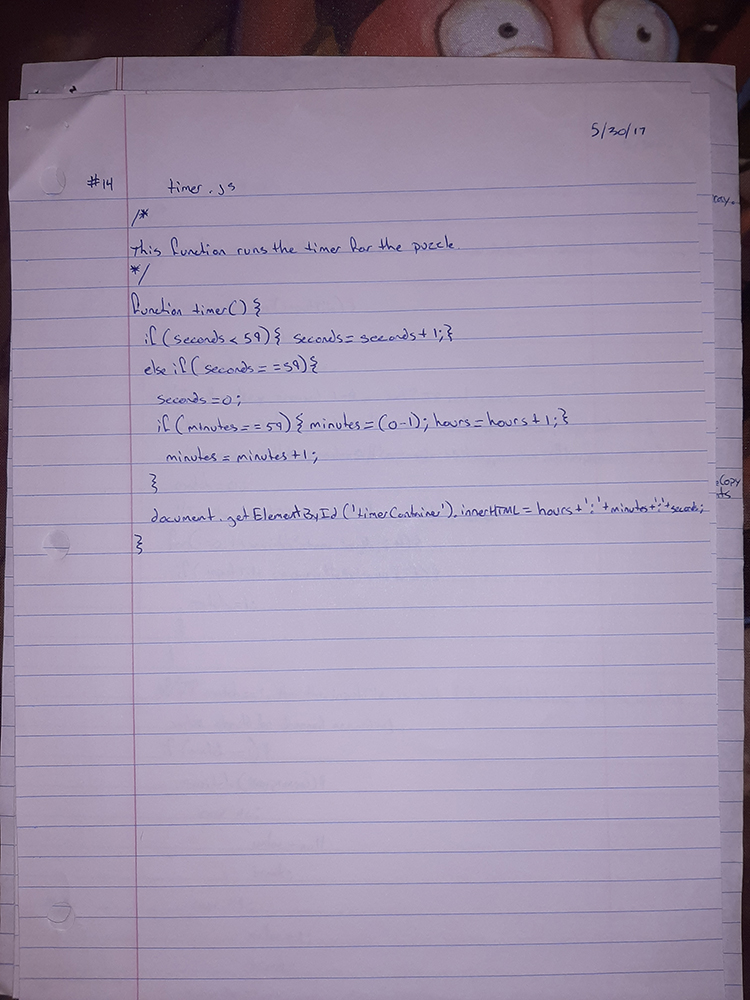 5/30/17
#14 timer.js
/*
This function runs the timer for the puzzle.
*/
function timer() {
if (seconds < 59) { seconds = seconds + 1; }
else if (seconds == 59) {
seconds = 0;
if (minutes == 59) { minutes = (0-1); hours = hours + 1; }
minutes = minutes + 1;
}
document.getElementById('timerContainer').innerHTML = hours + ':' + minutes + ':' + seconds;
}
copy.
Copy